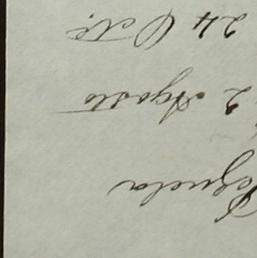 2 Agosto
24 Ott.